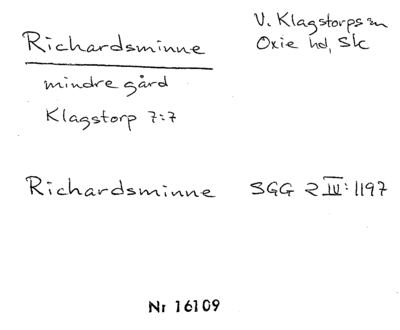 Richardsminne
V. Klagstorps sn
Oxie hd, Sk
mindre gård
Klagstorp 7:7
Richardsminne SGG 2 IV:1197
Nr 16109